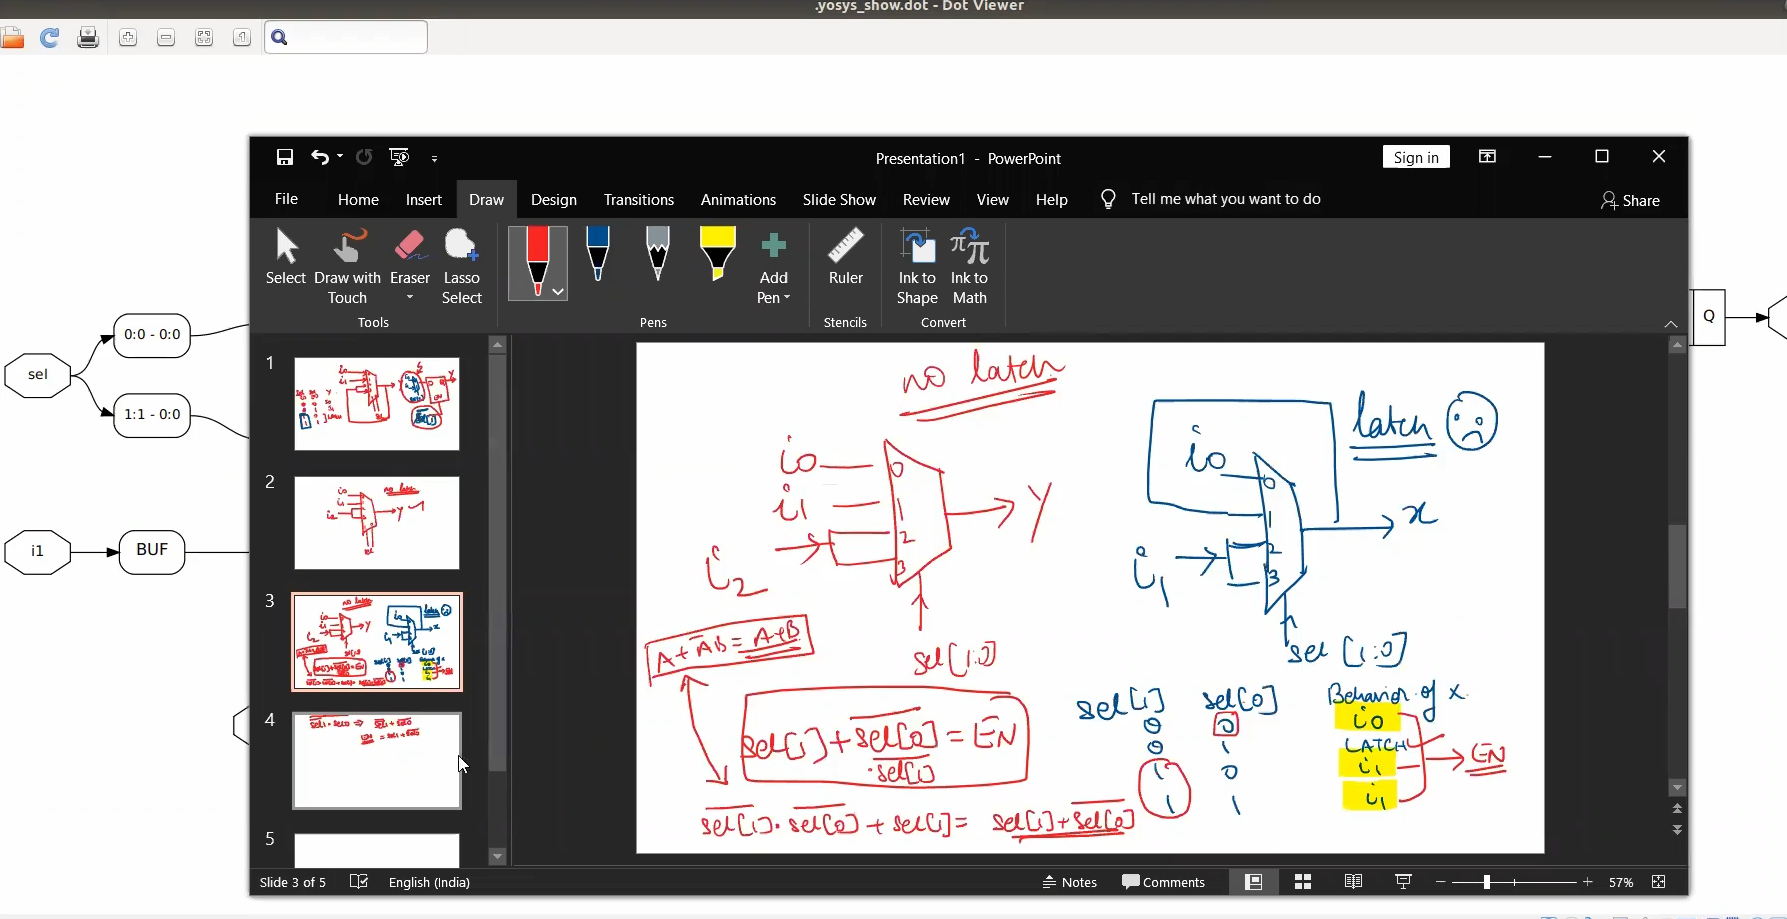 .yosys_show.dot - Dot Viewer
Presentation1 - PowerPoint
Sign in
File Home Insert Draw Design Transitions Animations Slide Show Review View Help Tell me what you want to do
Share
Select
Draw with Touch
Eraser
Lasso Select
Add Pen
Ruler
Ink to Shape
Ink to Math
Tools
Pens
Stencils
Convert
sel
0:0 - 0:0
1:1 - 0:0
i1
BUF
Q
1
2
3
4
5
no latch
i0
i1
i2
0
1
2
3
Y
sel[1:0]
latch
i0
i1
0
1
2
3
x
sel [1:0]
A+A̅B = A+B
sel[1] + s̅e̅l̅[̅0̅]̅ = EN
.s̅e̅l̅[̅1̅]̅
s̅e̅l̅[̅1̅]̅ . s̅e̅l̅[̅0̅]̅ + sel[1] = sel[1] + s̅e̅l̅[̅0̅]̅
sel[1] sel[0] Behavior of x
0 0 i0
0 1 LATCH
1 0 i1
1 1 i1
EN
Slide 3 of 5
English (India)
Notes
Comments
57%